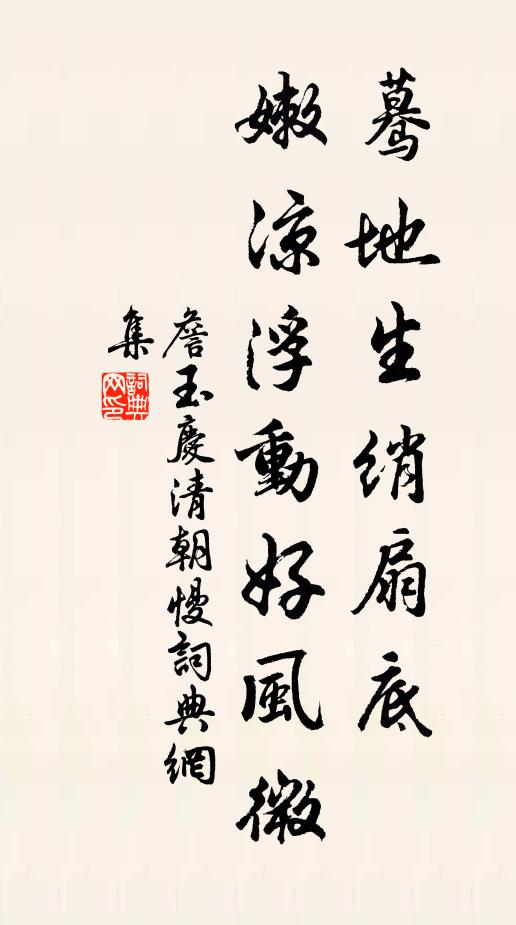 驀地生綃扇底
嫩涼浮動好風微
詹玉慶清朝慢詞典網
集
詞典
网印